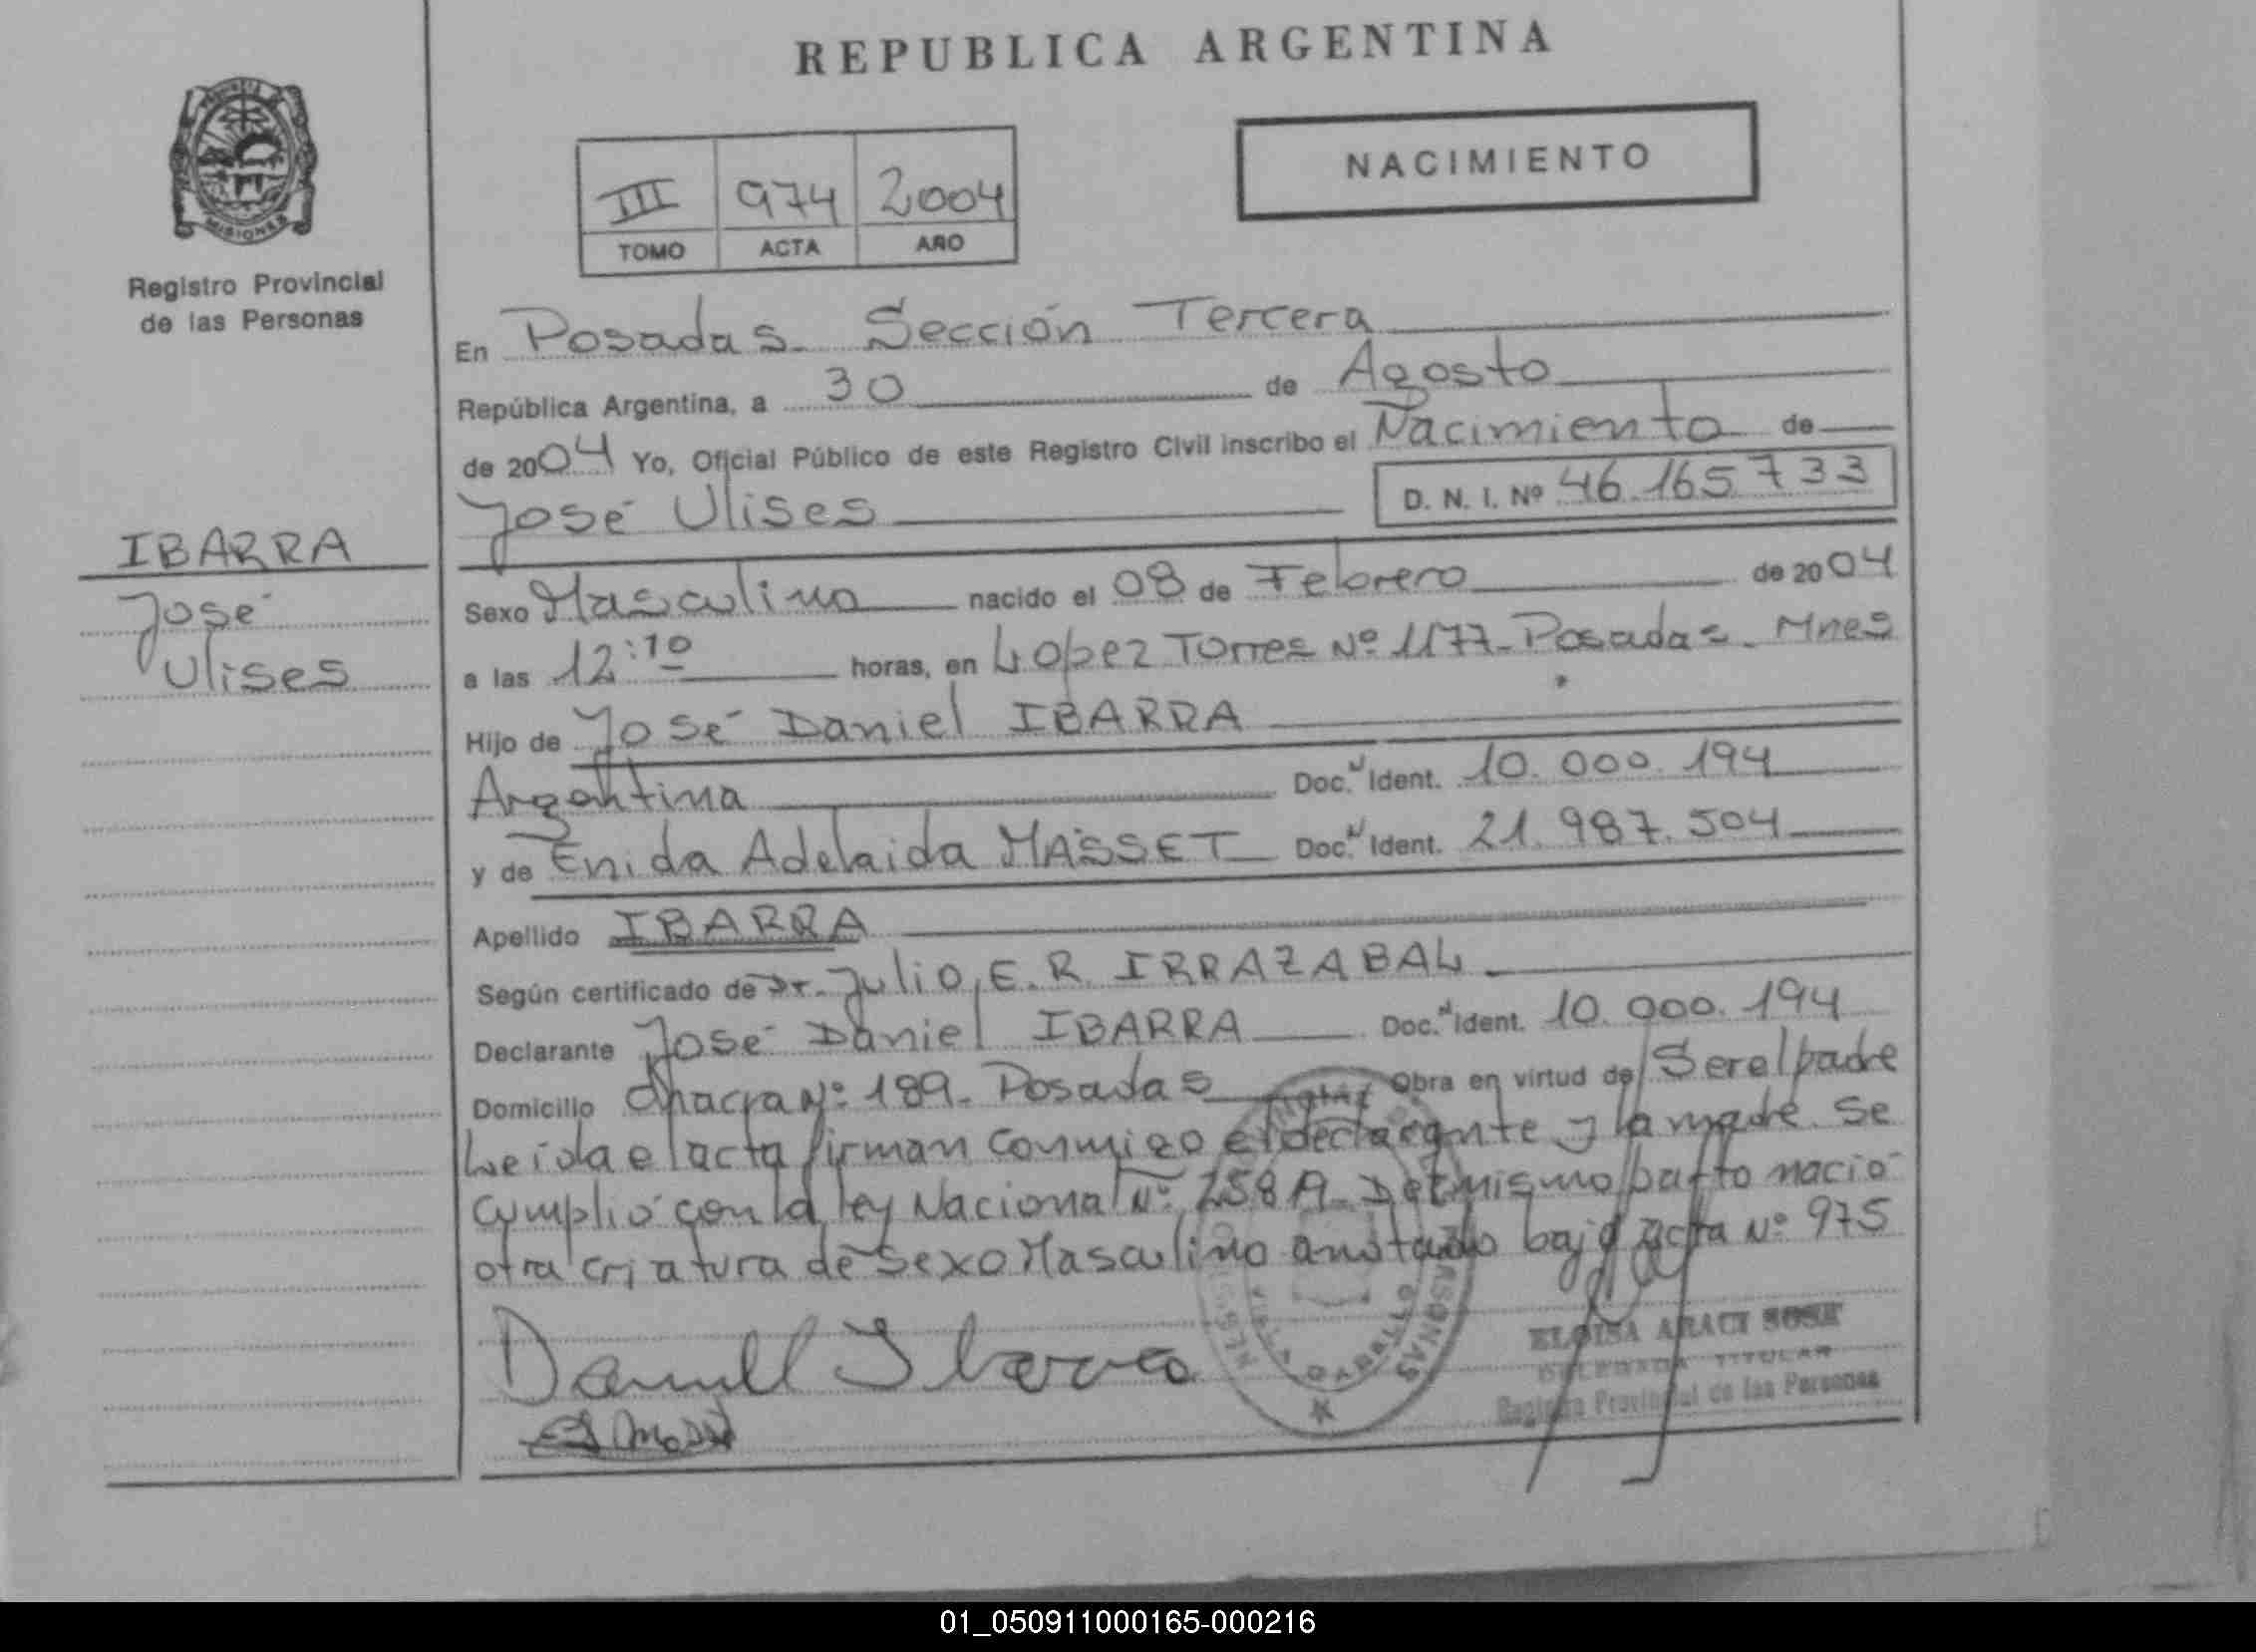 REPUBLICA ARGENTINA
MISIONES
Registro Provincial
de las Personas
III 974 2004
TOMO ACTA AÑO
NACIMIENTO
En Posadas. Sección Tercera
República Argentina, a 30 de Agosto
de 2004 Yo, Oficial Público de este Registro Civil inscribo el Nacimiento de
José Ulises
D. N. I. Nº 46.165.733
IBARRA
José
Ulises
Sexo Masculino nacido el 08 de Febrero de 2004
a las 12:10 horas, en Lopez Torres Nº 1177. Posadas. Mnes
Hijo de José Daniel IBARRA
Argentina Doc. Ident. 10.000.194
y de Enida Adelaida MASSET Doc. Ident. 21.987.504
Apellido IBARRA
Según certificado de Dr. Julio, E.R. IRRAZABAL
Declarante José Daniel IBARRA Doc. Ident. 10.000.194
Domicilio Chacra Nº 189. Posadas Obra en virtud de Ser el padre
Leida el acta firman conmigo el declarante y la madre. Se
cumplió con la ley Nacional Nº Del mismo parto nació
otra criatura de Sexo Masculino anotado bajo acta Nº 975
Daniel Ibarra
ELOISA ARACI SOSA
DELEGADA TITULAR
Registro Provincial de las Personas
01_050911000165-000216